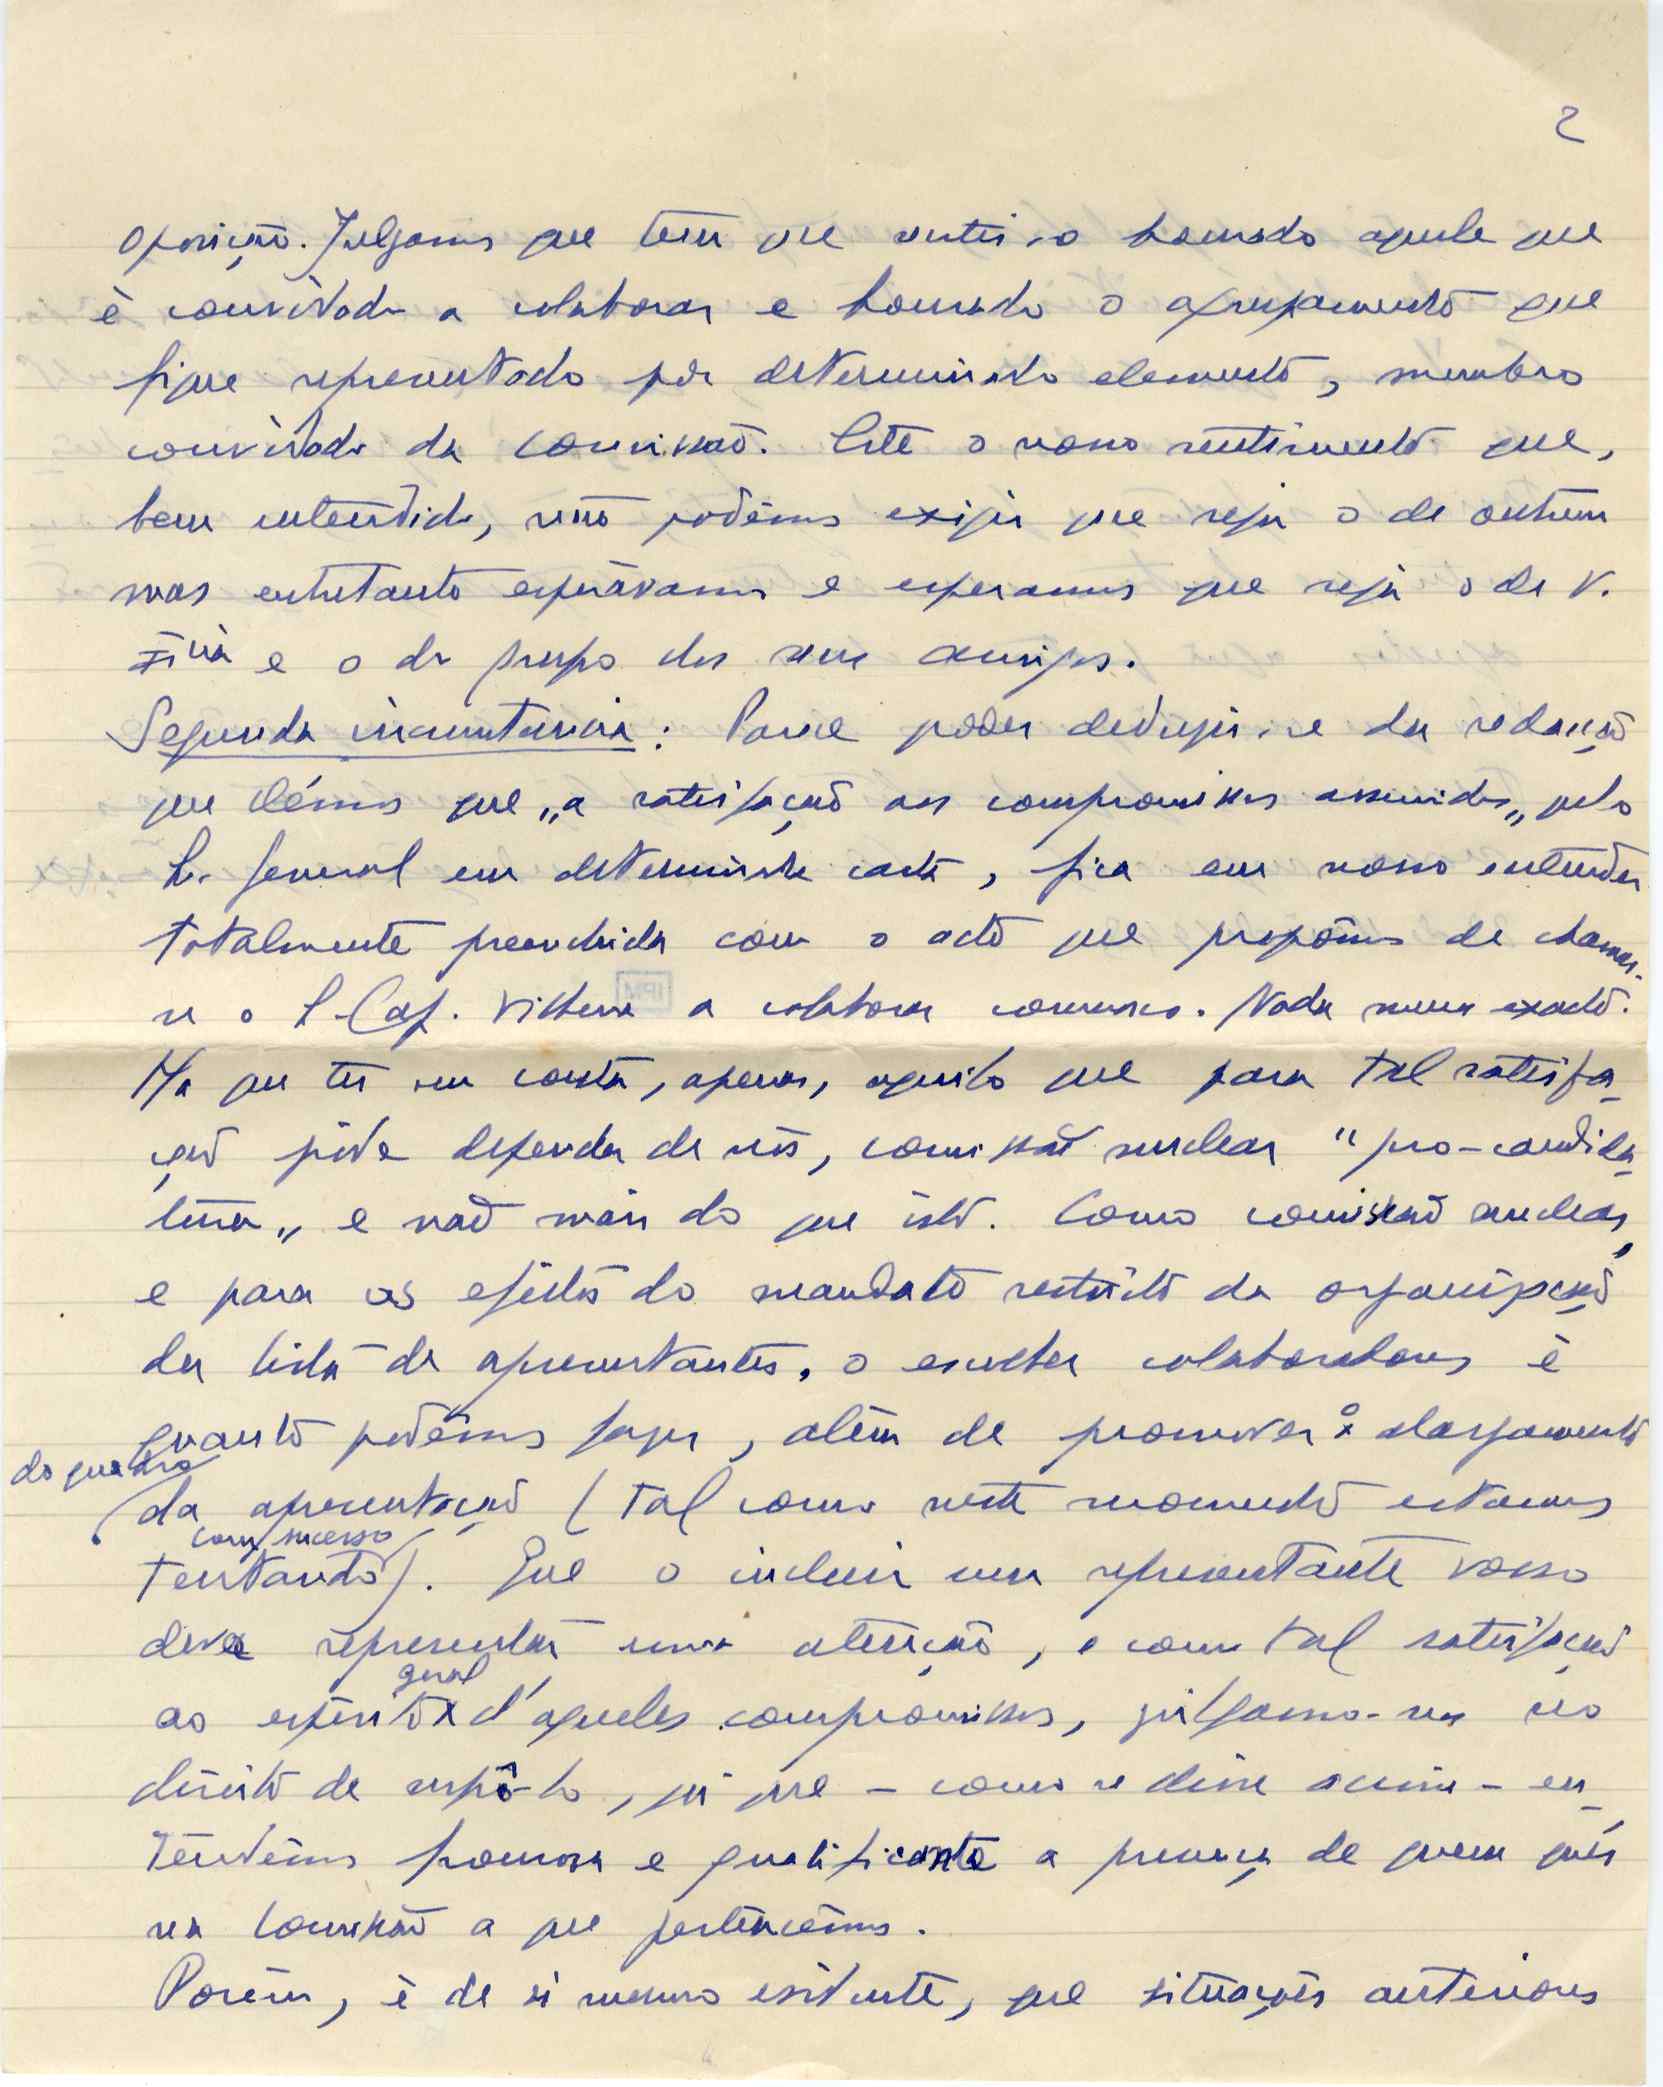 2
oposição. Julgamos que tem que sentir-se honrado aquele que
è convidado a colaborar e honrado o agrupamento que
fique representado por determinado elemento, membro
convidado da comissão. Este o nosso sentimento que,
bem entendido, não podêmos exigir que seja o de outrem
mas entretanto esperàvamos e esperamos que seja o de V.
Excia e o do grupo dos seus amigos.
Segunda circunstancia: Parece poder deduzir-se da redacção
que démos que „a satisfação aos compromissos assumidos„ pelo
Sr. General em determinada carta, fica em nosso entender
totalmente preenchida com o acto que propômos de chamar-
se o Sr. Cap. Vilhena a colaborar connosco. Nada menos exacto.
Ha que ter em conta, apenas, aquilo que para tal satisfa-
ção pode depender de nós, comissão nuclear "pro-candida-
tura„ e não mais do que isto. Como comissão nuclear,
e para os efeitos do mandato restrito da organização
da lista de apresentantes, o escolher colaboradores è
quanto podêmos fazer, alem de promover o alargamento
do quadro
da apresentação (tal como neste momento estamos
com sucesso
tentando). Que o incluir um representante vosso
deve representar uma atenção, e com tal satisfação
geral
ao espirito d'aqueles compromissos, julgamo-nos no
direito de supô-lo, já que – como se disse acima – en-
tendêmos honrosa e qualificante a presença de quem quer
na Comissão a que pertencêmos.
Porêm, è de si mesmo evidente, que situações anteriores